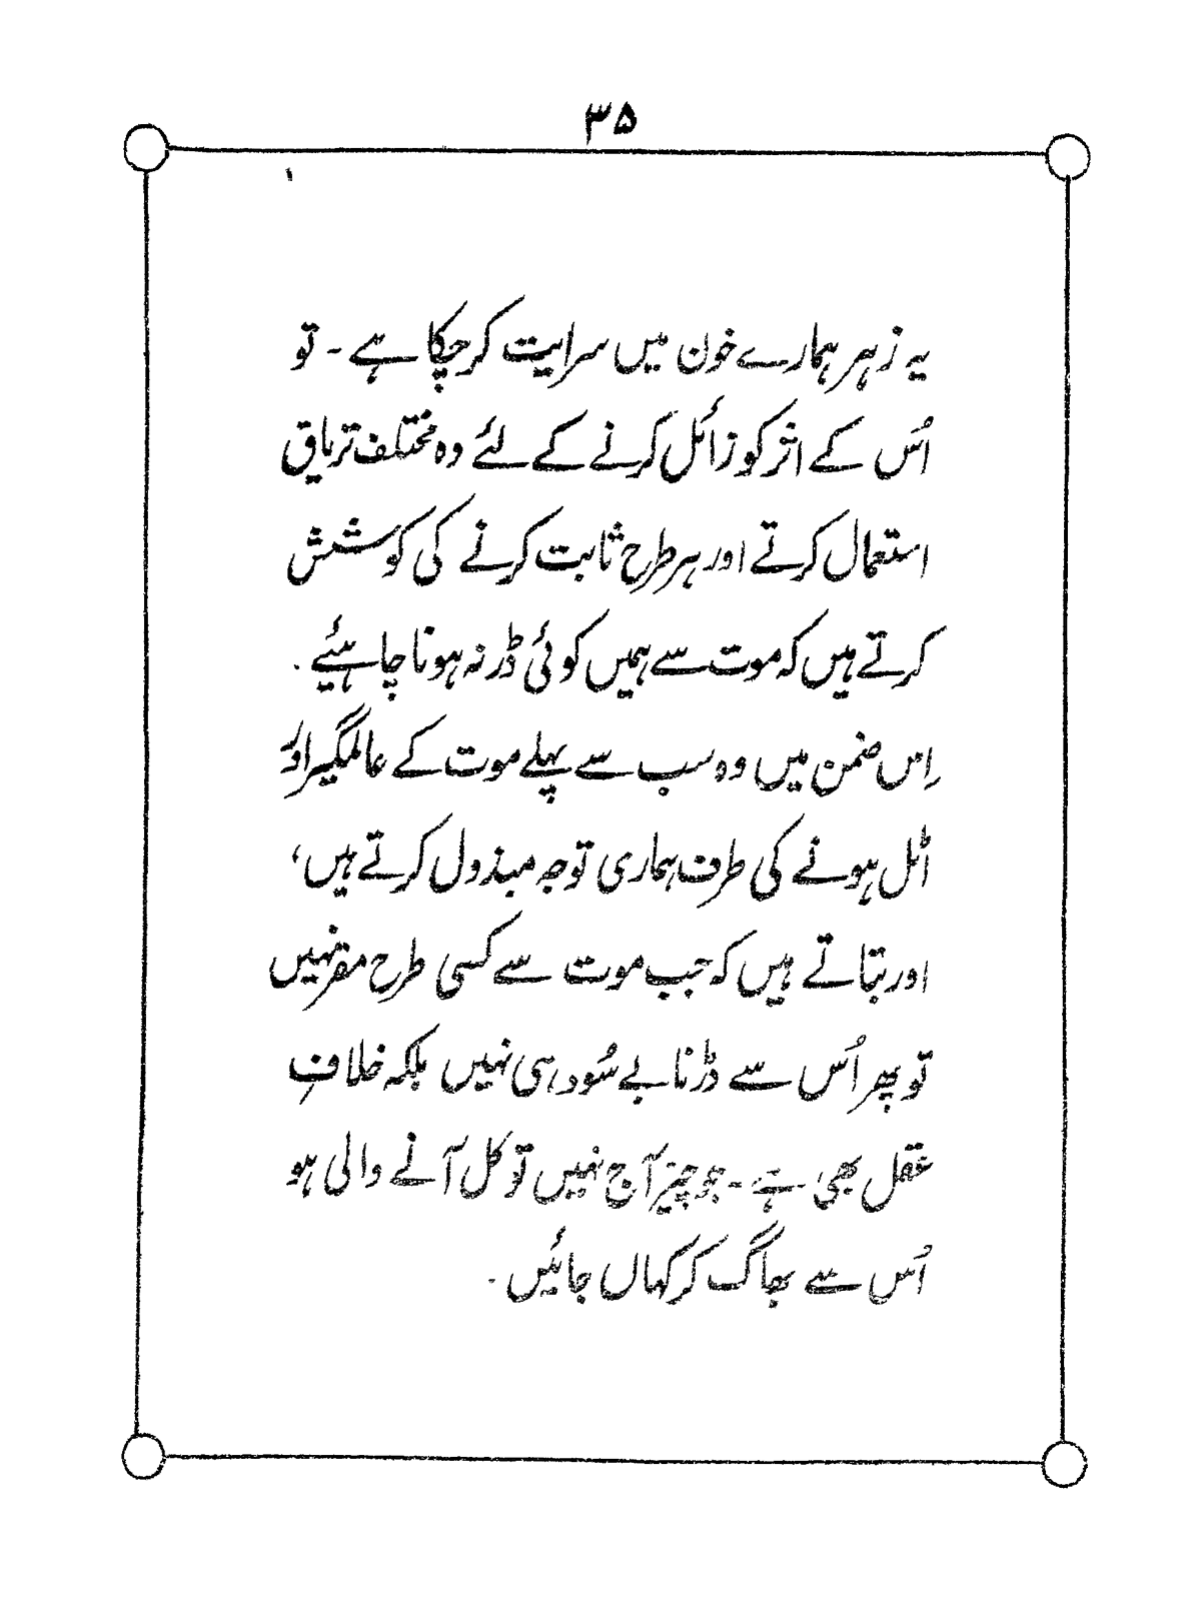 ۳۵
یہ زہر ہمارے خون میں سرایت کر چکا ہے ۔ تو
اُس کے اثر کو زائل کرنے کے لئے وہ مختلف تریاق
استعمال کرتے اور ہر طرح ثابت کرنے کی کوشش
کرتے ہیں کہ موت سے ہمیں کوئی ڈر نہ ہونا چاہئیے ۔
اِس ضمن میں وہ سب سے پہلے موت کے عالمگیر اور
اٹل ہونے کی طرف ہماری توجہ مبذول کرتے ہیں،
اور بتاتے ہیں کہ جب موت سے کسی طرح مفر نہیں
تو پھر اُس سے ڈرنا بے سُود ہی نہیں بلکہ خلافِ
عقل بھی ہے ۔ جو چیز آج نہیں تو کل آنے والی ہو
اُس سے بھاگ کر کہاں جائیں ۔